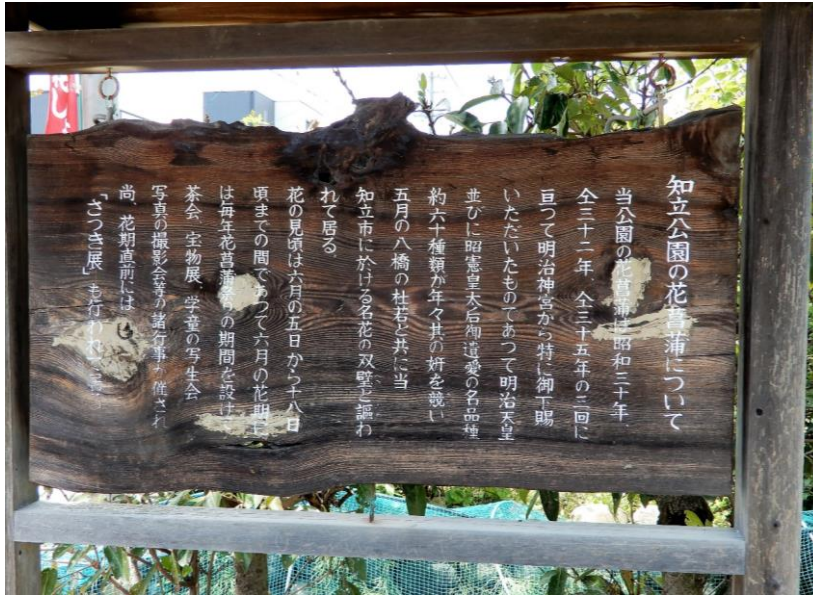 知立公園の花菖蒲について
当公園の花菖蒲は昭和三十年
仝三十二年、仝三十五年の三回に
亘つて明治神宮から特に御下賜
いただいたものであつて明治天皇
並びに昭憲皇太后御遺愛の名品種
約六十種類が年々其の妍を競い
五月の八橋の杜若と共に当
知立市に於ける名花の双壁と謳わ
れて居る、
花の見頃は六月の五日から十八日
頃までの間であつて六月の花期に
は毎年花菖蒲祭りの期間を設け
茶会、宝物展、学童の写生会
写真の撮影会等の諸行事が催され
尚、花期直前には
「さつき展」も行われ